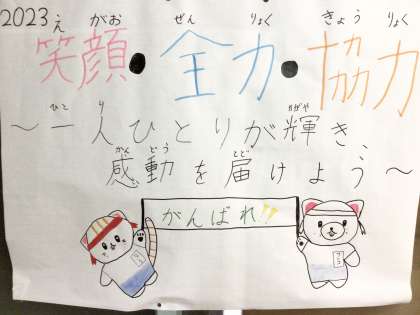 2023 えがお ぜんりょく きょうりょく
笑顔・全力・協力
ひとり かがや
～一人ひとりが輝き、
かんどう とど
感動を届けよう～
がんばれ!!